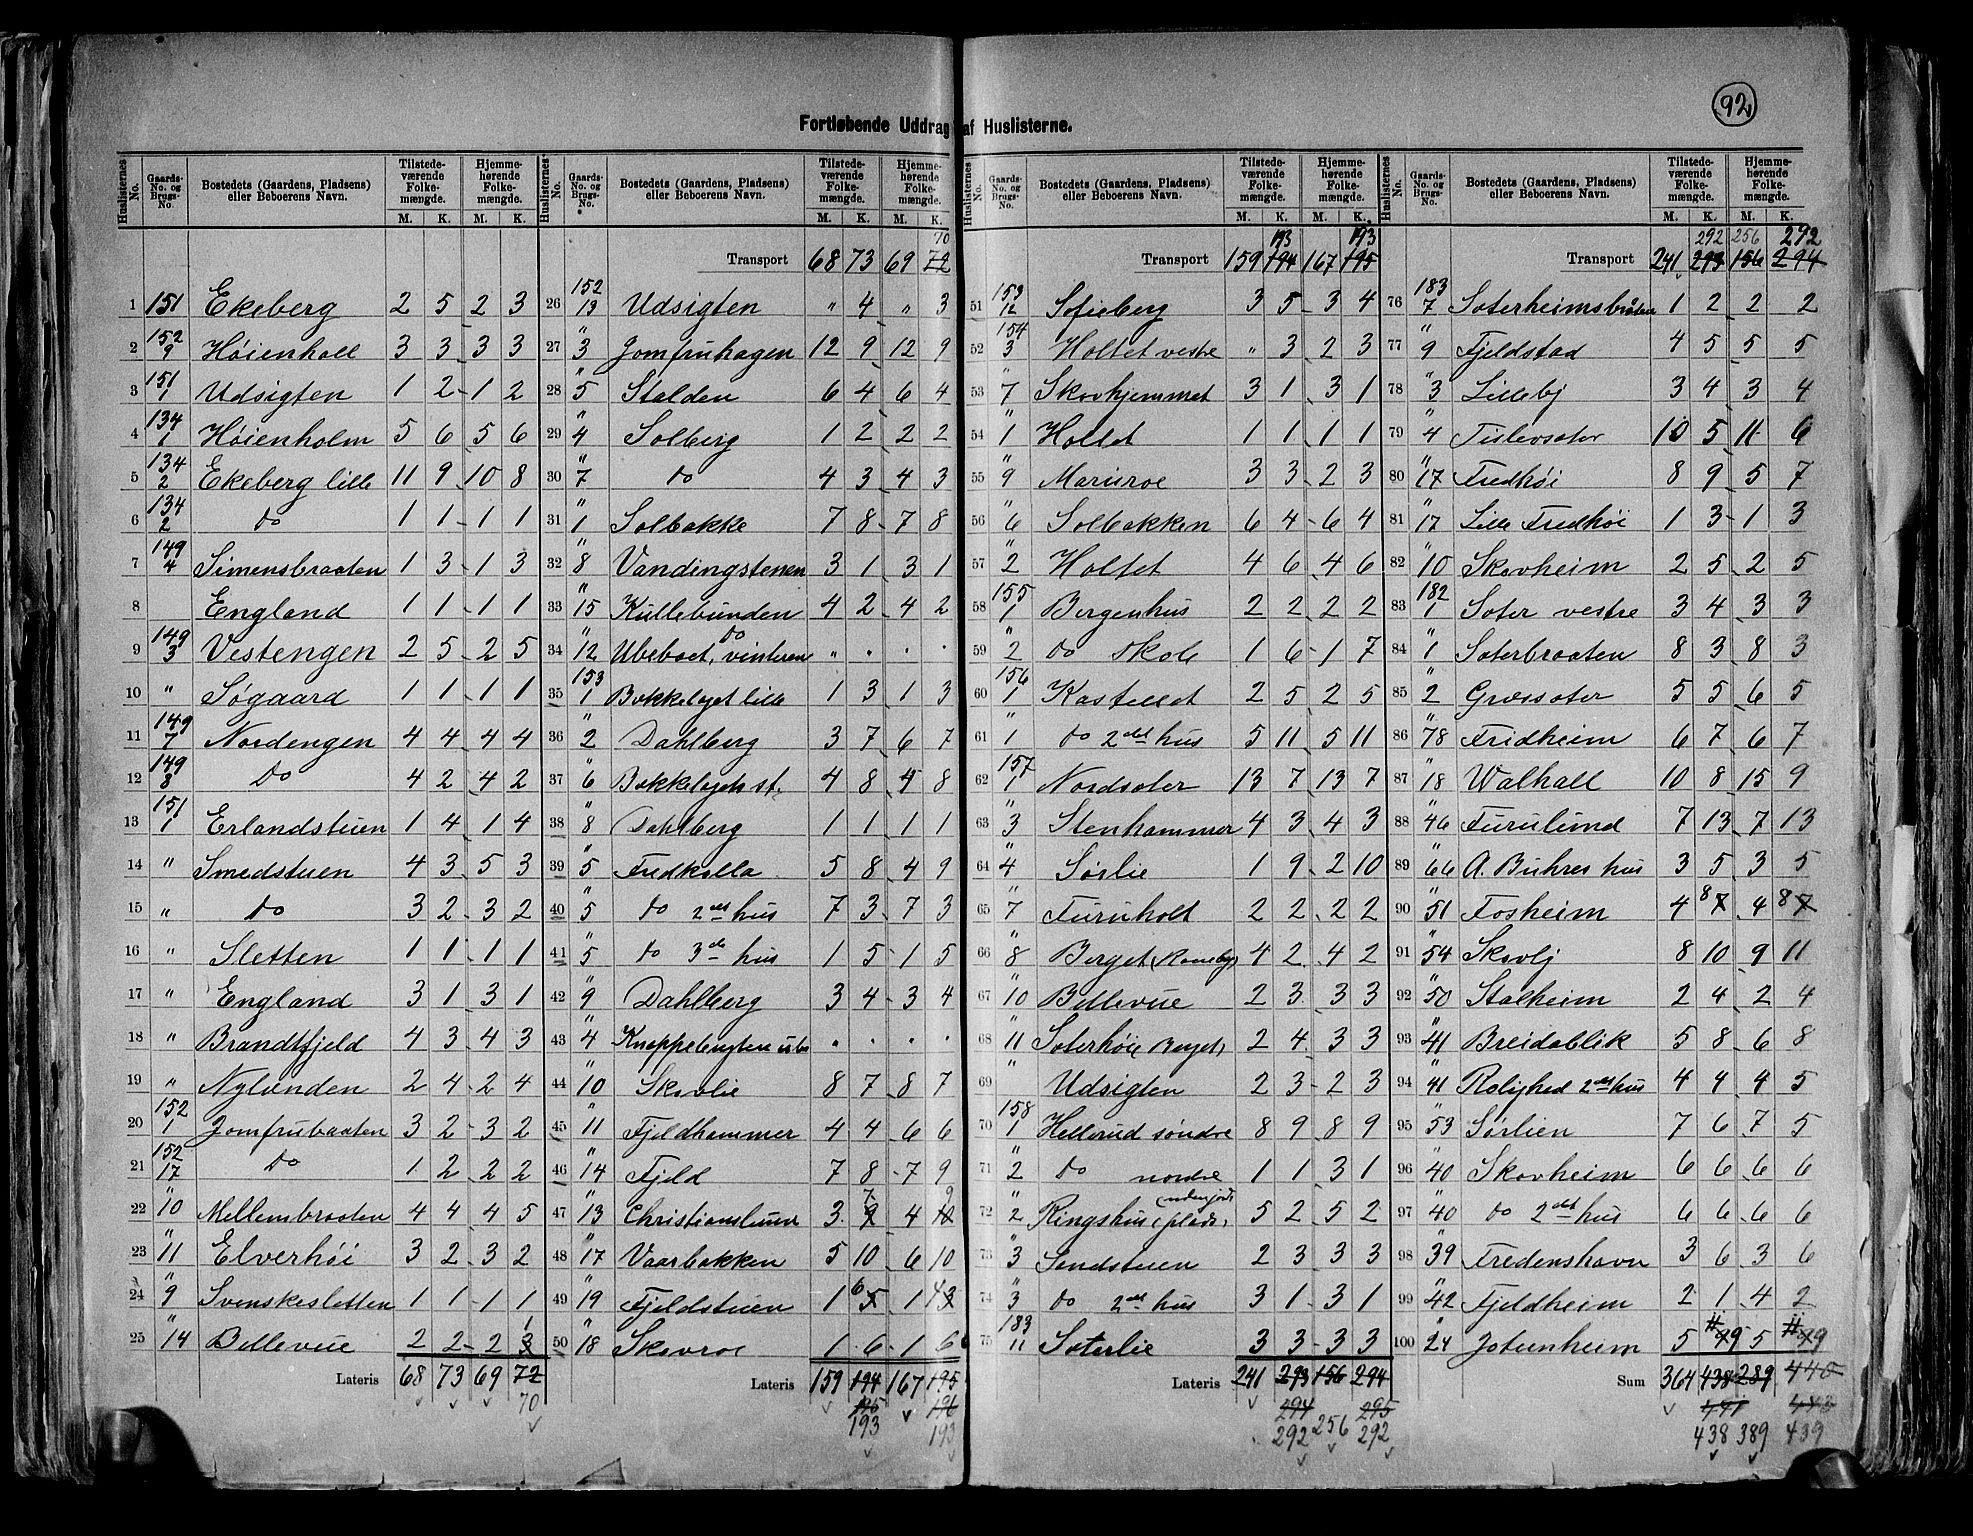 92
Fortløbende Uddrag af Huslisterne.
Huslisternes No. Gaards-No. og Brugs-No. Bostedets (Gaardens, Pladsens) eller Beboerens Navn. Tilstedeværende Folkemængde. M. K. Hjemmehørende Folkemængde. M. K.
1 151 Ekeberg 2 5 2 3
2 152 9 Høienhall 3 3 3 3
3 151 1 Udsigten 1 2 1 2
4 134 1 Høienholm 5 6 5 6
5 134 2 Ekeberg lille 11 9 10 8
6 134 2 do 1 1 1 1
7 149 4 Simensbraaten 1 3 1 3
8 England 1 1 1 1
9 149 3 Vestengen 2 5 2 5
10 " Søgaard 1 1 1 1
11 149 7 Nordengen 4 4 4 4
12 149 3 Do 4 2 4 2
13 151 1 Erlandstuen 1 4 1 4
14 " Smedstuen 4 3 5 3
15 " do 3 2 3 2
16 " Sletten 1 1 1 1
17 " England 3 1 3 1
18 " Brandtfjeld 4 3 4 3
19 " Nylænden 2 4 2 4
20 152 1 Jomfrubraaten 3 2 3 2
21 152 17 do 1 2 2 2
22 " 10 Mellembraaten 4 4 4 5
23 " 11 Elverhöi 3 2 3 2
24 " 9 Svenskesletten 1 1 1 1
25 " 14 Bellevue 2 2 2 3 1
Lateris 68 73 69 72
70
Huslisternes No. Gaards-No. og Brugs-No. Bostedets (Gaardens, Pladsens) eller Beboerens Navn. Tilstedeværende Folkemængde. M. K. Hjemmehørende Folkemængde. M. K.
70
Transport 68 73 69 72
26 152 13 Udsigten " 4 " 3
27 " 3 Jomfruhagen 12 9 12 9
28 " 5 Stalden 6 4 6 4
29 " 4 Solberg 1 2 2 2
30 " 7 do 4 3 4 3
31 " 1 Solbakke 7 8 7 8
32 " 8 Vandingstenen 3 1 3 1
33 " 15 Kullebunden 4 2 4 2
34 " 12 do Ubeboet, vinteren " . . .
35 153 1 Bækkelaget lille 1 3 1 3
36 " 2 Dahlberg 3 7 6 7
37 " 6 Bækkelagets st. 4 8 4 8
38 " 8 Dahlberg 1 1 1 1
39 " 5 Fredkolla 5 8 4 9
40 " 5 do 2det hus 7 3 7 3
41 " 5 do 3de hus 1 5 1 5
42 " 9 Dahlberg 3 4 3 4
43 " 4 " . . .
44 " 10 Skovlie 8 7 8 7
45 " 11 Fjeldhammer 4 4 6 6
46 " 14 Fjeld 7 8 7 9
47 " 13 Christianslund 3 7 4 9
48 " 17 Vaarbakken 5 10 6 10
49 " 19 Fjeldstuen 1 6 5 1 4 3
50 " 18 Skovroe 1 6 1 6
Lateris 159 194 167 195
195 196
193 193
Huslisternes No. Gaards-No. og Brugs-No. Bostedets (Gaardens, Pladsens) eller Beboerens Navn. Tilstedeværende Folkemængde. M. K. Hjemmehørende Folkemængde. M. K.
193 193
Transport 159 194 167 195
51 153 12 Sofieberg 3 5 3 4
52 154 3 Holtet vestre " 3 2 3
53 " 7 Skovhjemmet 3 1 3 1
54 " 1 Holtet 1 1 1 1
55 " 9 Mariroe 3 3 2 3
56 " 6 Solbakken 6 4 6 4
57 " 2 Holtet 4 6 4 6
58 155 1 Bergenhus 2 2 2 2
59 " 2 do Skole 1 6 1 7
60 156 1 Kastellet 2 5 2 5
61 " 1 do 2det hus 5 11 5 11
62 157 1 Nordsæter 13 7 13 7
63 " 3 Stenhammer 4 3 4 3
64 " 4 Sørlie 1 9 2 10
65 " 7 Furuholt 2 2 2 2
66 " 8 Berget 4 2 4 2
67 " 10 Bellevue 2 3 3 3
68 " 11 Sæterhöie Berget 2 4 3 3
69 " Udsigten 2 3 2 3
70 158 1 Hellerud søndre 8 9 8 9
71 " 2 do nordre 1 1 3 1
72 " 2 Ringshus (plads, uden jord) 5 2 5 2
73 " 3 Sandstuen 2 3 3 3
74 " 3 do 2det hus 3 1 3 1
75 183 11 Sæterlie 3 3 3 3
Lateris 241 293 156 294
294 295
292 256 292
Huslisternes No. Gaards-No. og Brugs-No. Bostedets (Gaardens, Pladsens) eller Beboerens Navn. Tilstedeværende Folkemængde. M. K. Hjemmehørende Folkemængde. M. K.
292 256 292
Transport 241 293 156 294
76 183 7 Sæterheimsbråten 1 2 2 2
77 " 9 Fjeldstad 4 5 5 5
78 " 3 Lilleby 3 4 3 4
79 " 4 Tislevsæter 10 5 11 6
80 " 17 Fredhöi 8 9 5 7
81 " 17 Lille Fredhöi 1 3 1 3
82 " 10 Skovheim 2 5 2 5
83 182 1 Sæter vestre 3 4 3 3
84 " 1 Sæterbraaten 8 3 8 3
85 " 2 Græssæter 5 5 6 5
86 " 78 Fridheim 6 7 6 7
87 " 18 Walhall 10 8 15 9
88 " 46 Furulund 7 13 7 13
89 " 66 A. Buhres hus 3 5 3 5
90 " 51 Fosheim 4 8 7 4 8 7
91 " 54 Skovly 8 10 9 11
92 " 50 Stalheim 2 4 2 4
93 " 41 Breidablik 5 8 6 8
94 " 41 Rolighed 2det hus 4 4 4 5
95 " 53 Sørlien 7 6 7 5
96 " 40 Skovheim 6 6 6 6
97 " 40 do 2det hus 6 6 6 6
98 " 39 Fredenshavn 3 6 3 6
99 " 42 Fjeldheim 2 1 4 2
100 " 24 Jotunheim 5 9 5 9
Sum 364 438 289 440
438 389 439